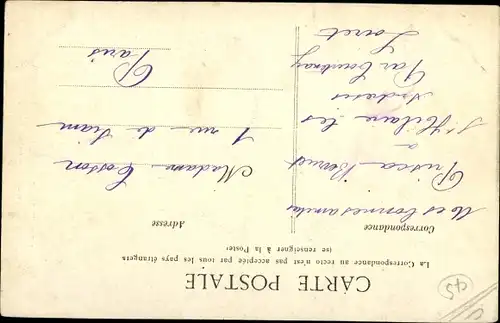 CARTE POSTALE
La Correspondance au recto n'est pas acceptée par tous les pays étrangers
(se renseigner à la Poste)
Correspondance
Mes bonnes amitiés
Prisca
a
St Hilaire les
Andresis
Par Courtenay
Loiret
Adresse
Madame Cosson
1 rue de Siam
Paris
45